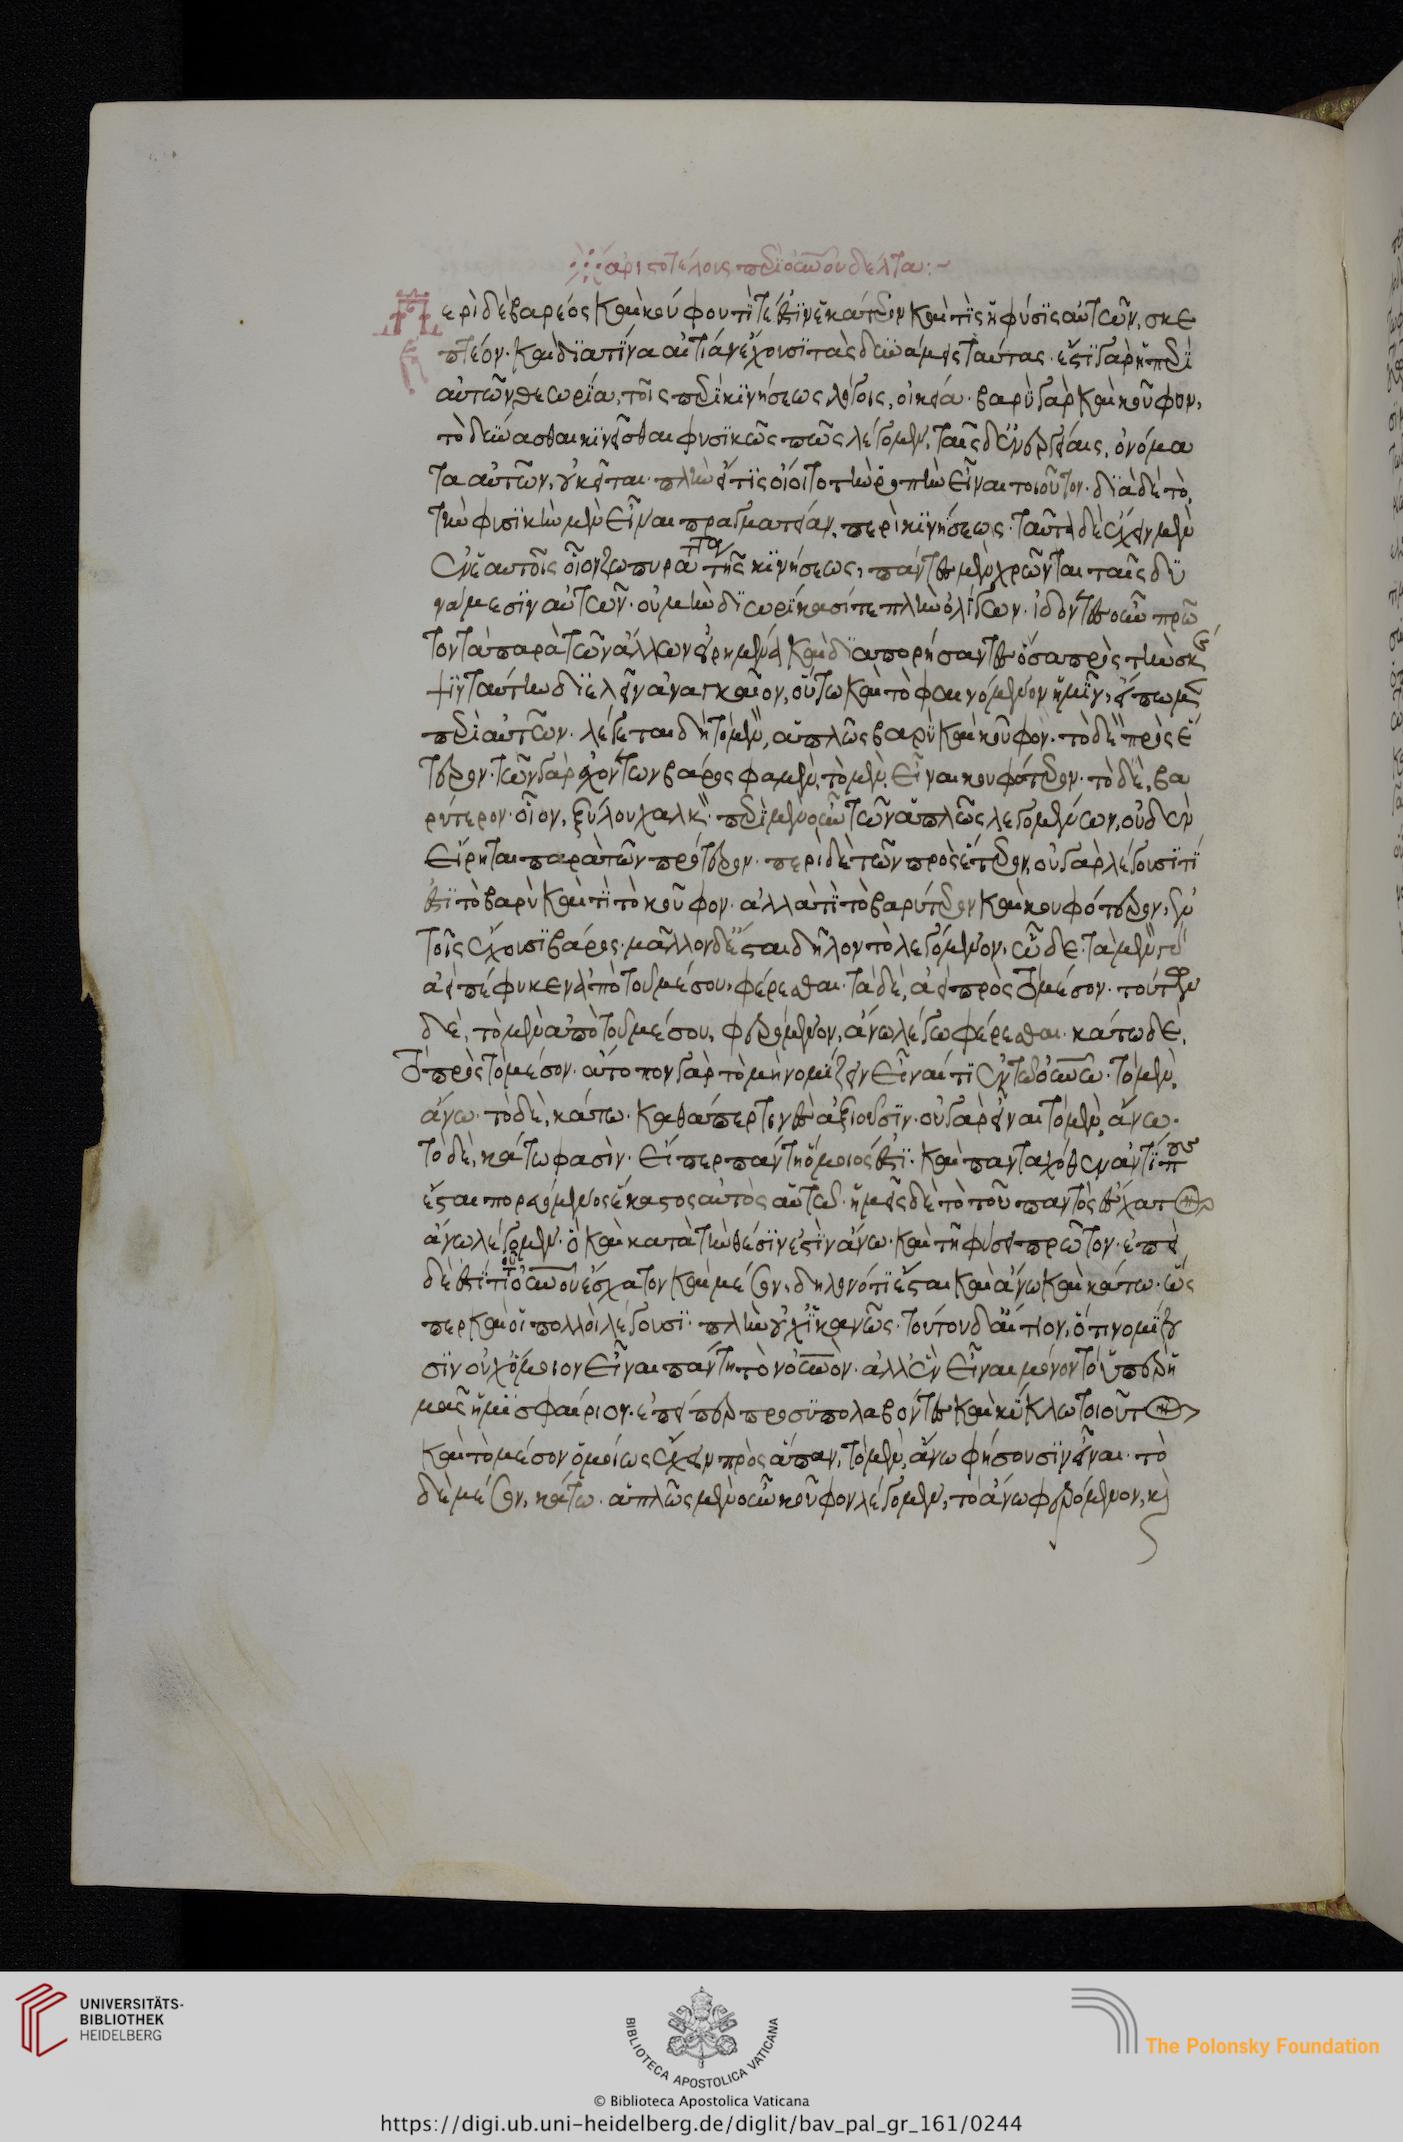 ἀριστοτέλους περὶ οὐνοῦ δέλτα:~
Περὶ δὲ βαρέος καὶ κούφου τί τέ ἐστιν ἑκάτερον καὶ τίς ἡ φύσις αὐτῶν, σκε
πτέον· καὶ διατίνα αἰτίαν ἔχουσι τὰς δυνάμεις ταύτας· ἔστι γὰρ ἡ περὶ
αὐτῶν θεωρία, τοῖς περὶ κινήσεως λόγοις, οἰκεία· βαρὺ γὰρ καὶ κοῦφον,
τὸ δύνασθαι κινεῖσθαι φυσικῶς πῶς λέγομεν, ταῖς δὲ ἐνεργείαις, ὀνόμα
τα αὐτῶν, οὐ κεῖται· πλὴν εἴ τις οἴοιτο τὴν ῥοπὴν εἶναι τοιοῦτον· διὰ δὲ τὸ,
τὴν φυσικὴν μὲν εἶναι πραγματείαν, περὶ κινήσεως· ταῦτα δὲ ἔχειν μὲν
ἐν ἑαυτοῖς οἷον ζώπυρα τῆς κινήσεως, πάντες μὲν χρῶνται ταῖς δυ
νάμεσιν αὐτῶν· οὐ μὴν διωρίκασί πε πλὴν ὀλίγων· ἰδόντες οὖν πρῶ
τον τὰ παρὰ τῶν ἄλλων εἰρημένα καὶ διαπορήσαντες ὅσα πρὸς τὴν σκέ
ψιν ταύτην διελεῖν ἀναγκαῖον, οὕτω καὶ τὸ φαινόμενον ἡμῖν, εἴπωμεν
περὶ αὐτῶν· λέγεται δὴ τὸ μὲν, ἁπλῶς βαρὺ καὶ κοῦφον· τὸ δὲ πρὸς ἕ
τερον· τῶν γὰρ ἐχόντων βάρος φαμὲν, τὸ μὲν, εἶναι κουφότερον· τὸ δὲ, βα
ρύτερον· οἷον, ξύλου χαλκὸν· περὶ μὲν οὖν τῶν ἁπλῶς λεγομένων, οὐδὲν
εἴρηται παρὰ τῶν πρότερον· περὶ δὲ τῶν πρὸς ἕτερον, οὐ γὰρ λέγουσι τί
ἐστι τὸ βαρὺ καὶ τί τὸ κοῦφον· ἀλλὰ τί τὸ βαρύτερον καὶ κουφότερον, ἐν
τοῖς ἔχουσι βάρος· μᾶλλον δὲ ἔσται δῆλον τὸ λεγόμενον, ὧδε· τὰ μὲν γὰρ
ἀεὶ πέφυκεν ἀπὸ τοῦ μέσου, φέρεσθαι· τὰ δὲ, ἀεὶ πρὸς τὸ μέσον· τούτων
δὲ, τὸ μὲν ἀπὸ τοῦ μέσου, φερόμενον, ἄνω λέγω φέρεσθαι· κάτω δὲ,
τὸ πρὸς τὸ μέσον· ἄτοπον γὰρ τὸ μὴ νομίζειν εἶναί τι ἐν τῶ οὐνῶ· τὸ μὲν,
ἄνω· τὸ δὲ, κάτω· καθάπερ τινὲς ἀξιοῦσιν· οὐ γὰρ εἶναι τὸ μὲν, ἄνω·
τὸ δὲ, κάτω φασὶν· εἴπερ πάντη ὅμοιός ἐστι· καὶ πανταχόθεν ἀντίπους
ἔσται πορευόμενος ἕκαστος αὐτὸς αὑτῶ· ἡμεῖς δὲ τὸ τοῦ παντὸς ἔσχατον
ἄνω λέγομεν· ὃ καὶ κατὰ τὴν θέσιν ἐστὶν ἄνω· καὶ τῆ φύσει πρῶτον· ἐπεὶ
δὲ ἐστί τι τοῦ οὐνοῦ ἔσχατον καὶ μέσον, δηλονότι ἔσται καὶ ἄνω καὶ κάτω· ὥς
περ καὶ οἱ πολλοὶ λέγουσι· πλὴν οὐχ ἱκανῶς· τούτου δ' αἴτιον, ὅτι νομίζου
σιν οὐχ ὅμοιον εἶναι πάντη τὸν οὐνὸν· ἀλλ' ἓν εἶναι μόνον τὸ ὑπὲρ ἡ
μᾶς ἡμισφαίριον· ἐπεὶ προσυπολαβόντες καὶ κύκλω τοιοῦτον
καὶ τὸ μέσον ὁμοίως ἔχειν πρὸς ἅπαν, τὸ μὲν, ἄνω φήσουσιν εἶναι· τὸ
δὲ μέσον, κάτω· ἁπλῶς μὲν οὖν κοῦφον λέγομεν, τὸ ἄνω φερόμενον, καὶ
UNIVERSITÄTS-
BIBLIOTHEK
HEIDELBERG
BIBLIOTECA APOSTOLICA VATICANA
The Polonsky Foundation
© Biblioteca Apostolica Vaticana
https://digi.ub.uni-heidelberg.de/diglit/bav_pal_gr_161/0244